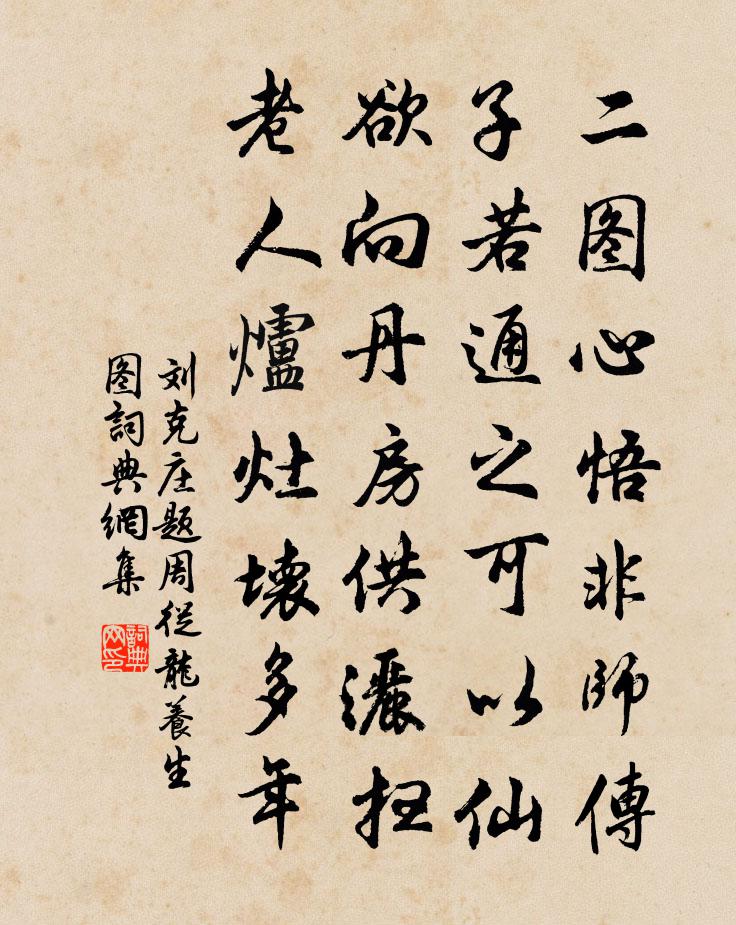 二图心悟非師傳
子若通之可以仙
欲向丹房供灑扫
老人爐灶壞多年
刘克庄题周從龍養生
图詞典網集
詞典
网印